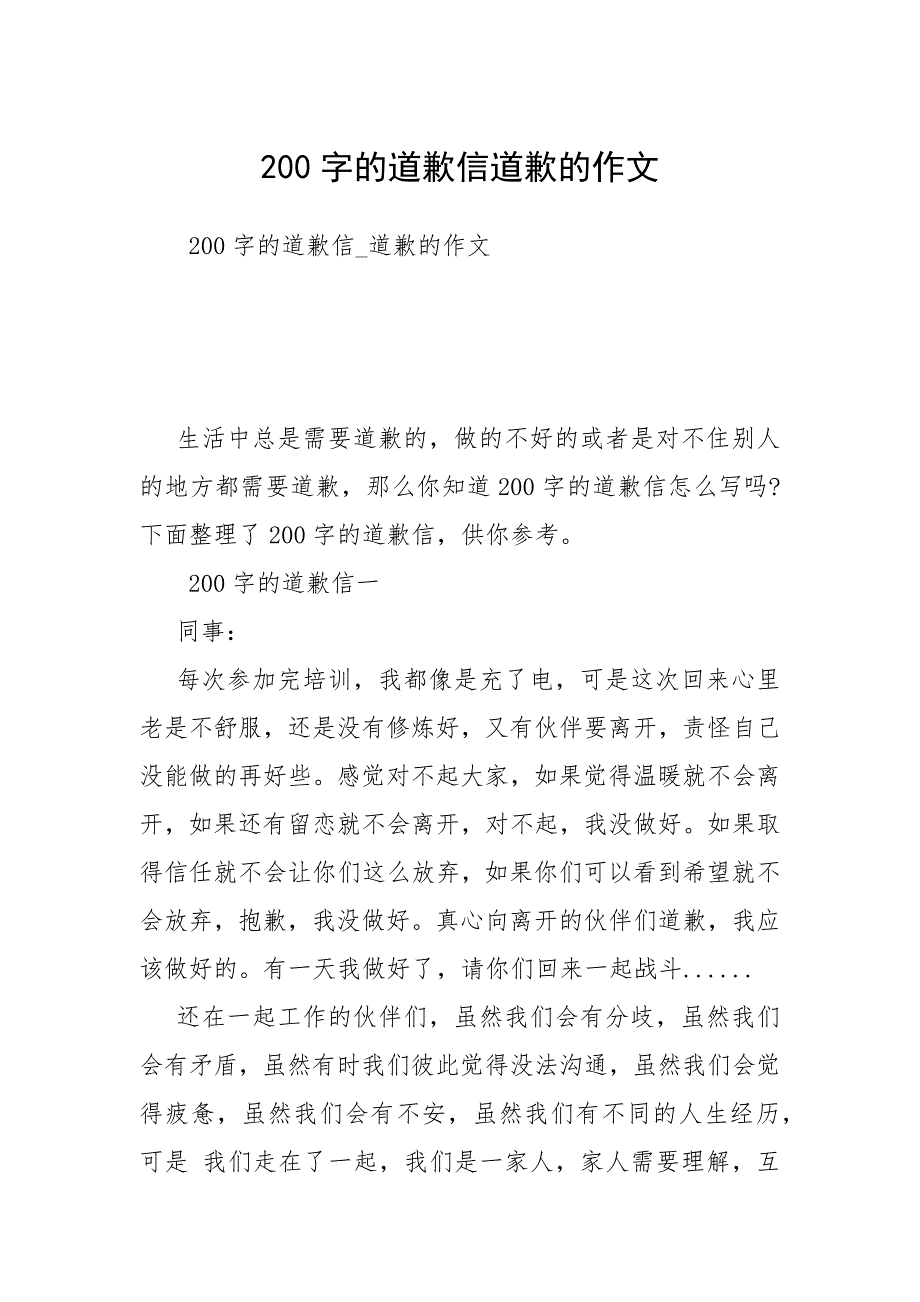 200 字的道歉信道歉的作文
200 字的道歉信_道歉的作文
生活中总是需要道歉的，做的不好的或者是对不住别人
的地方都需要道歉，那么你知道 200 字的道歉信怎么写吗?
下面整理了 200 字的道歉信，供你参考。
200 字的道歉信一
同事：
每次参加完培训，我都像是充了电，可是这次回来心里
老是不舒服，还是没有修炼好，又有伙伴要离开，责怪自己
没能做的再好些。感觉对不起大家，如果觉得温暖就不会离
开，如果还有留恋就不会离开，对不起，我没做好。如果取
得信任就不会让你们这么放弃，如果你们可以看到希望就不
会放弃，抱歉，我没做好。真心向离开的伙伴们道歉，我应
该做好的。有一天我做好了，请你们回来一起战斗......
还在一起工作的伙伴们，虽然我们会有分歧，虽然我们
会有矛盾，虽然有时我们彼此觉得没法沟通，虽然我们会觉
得疲惫，虽然我们会有不安，虽然我们有不同的人生经历，
可是 我们走在了一起，我们是一家人，家人需要理解，互